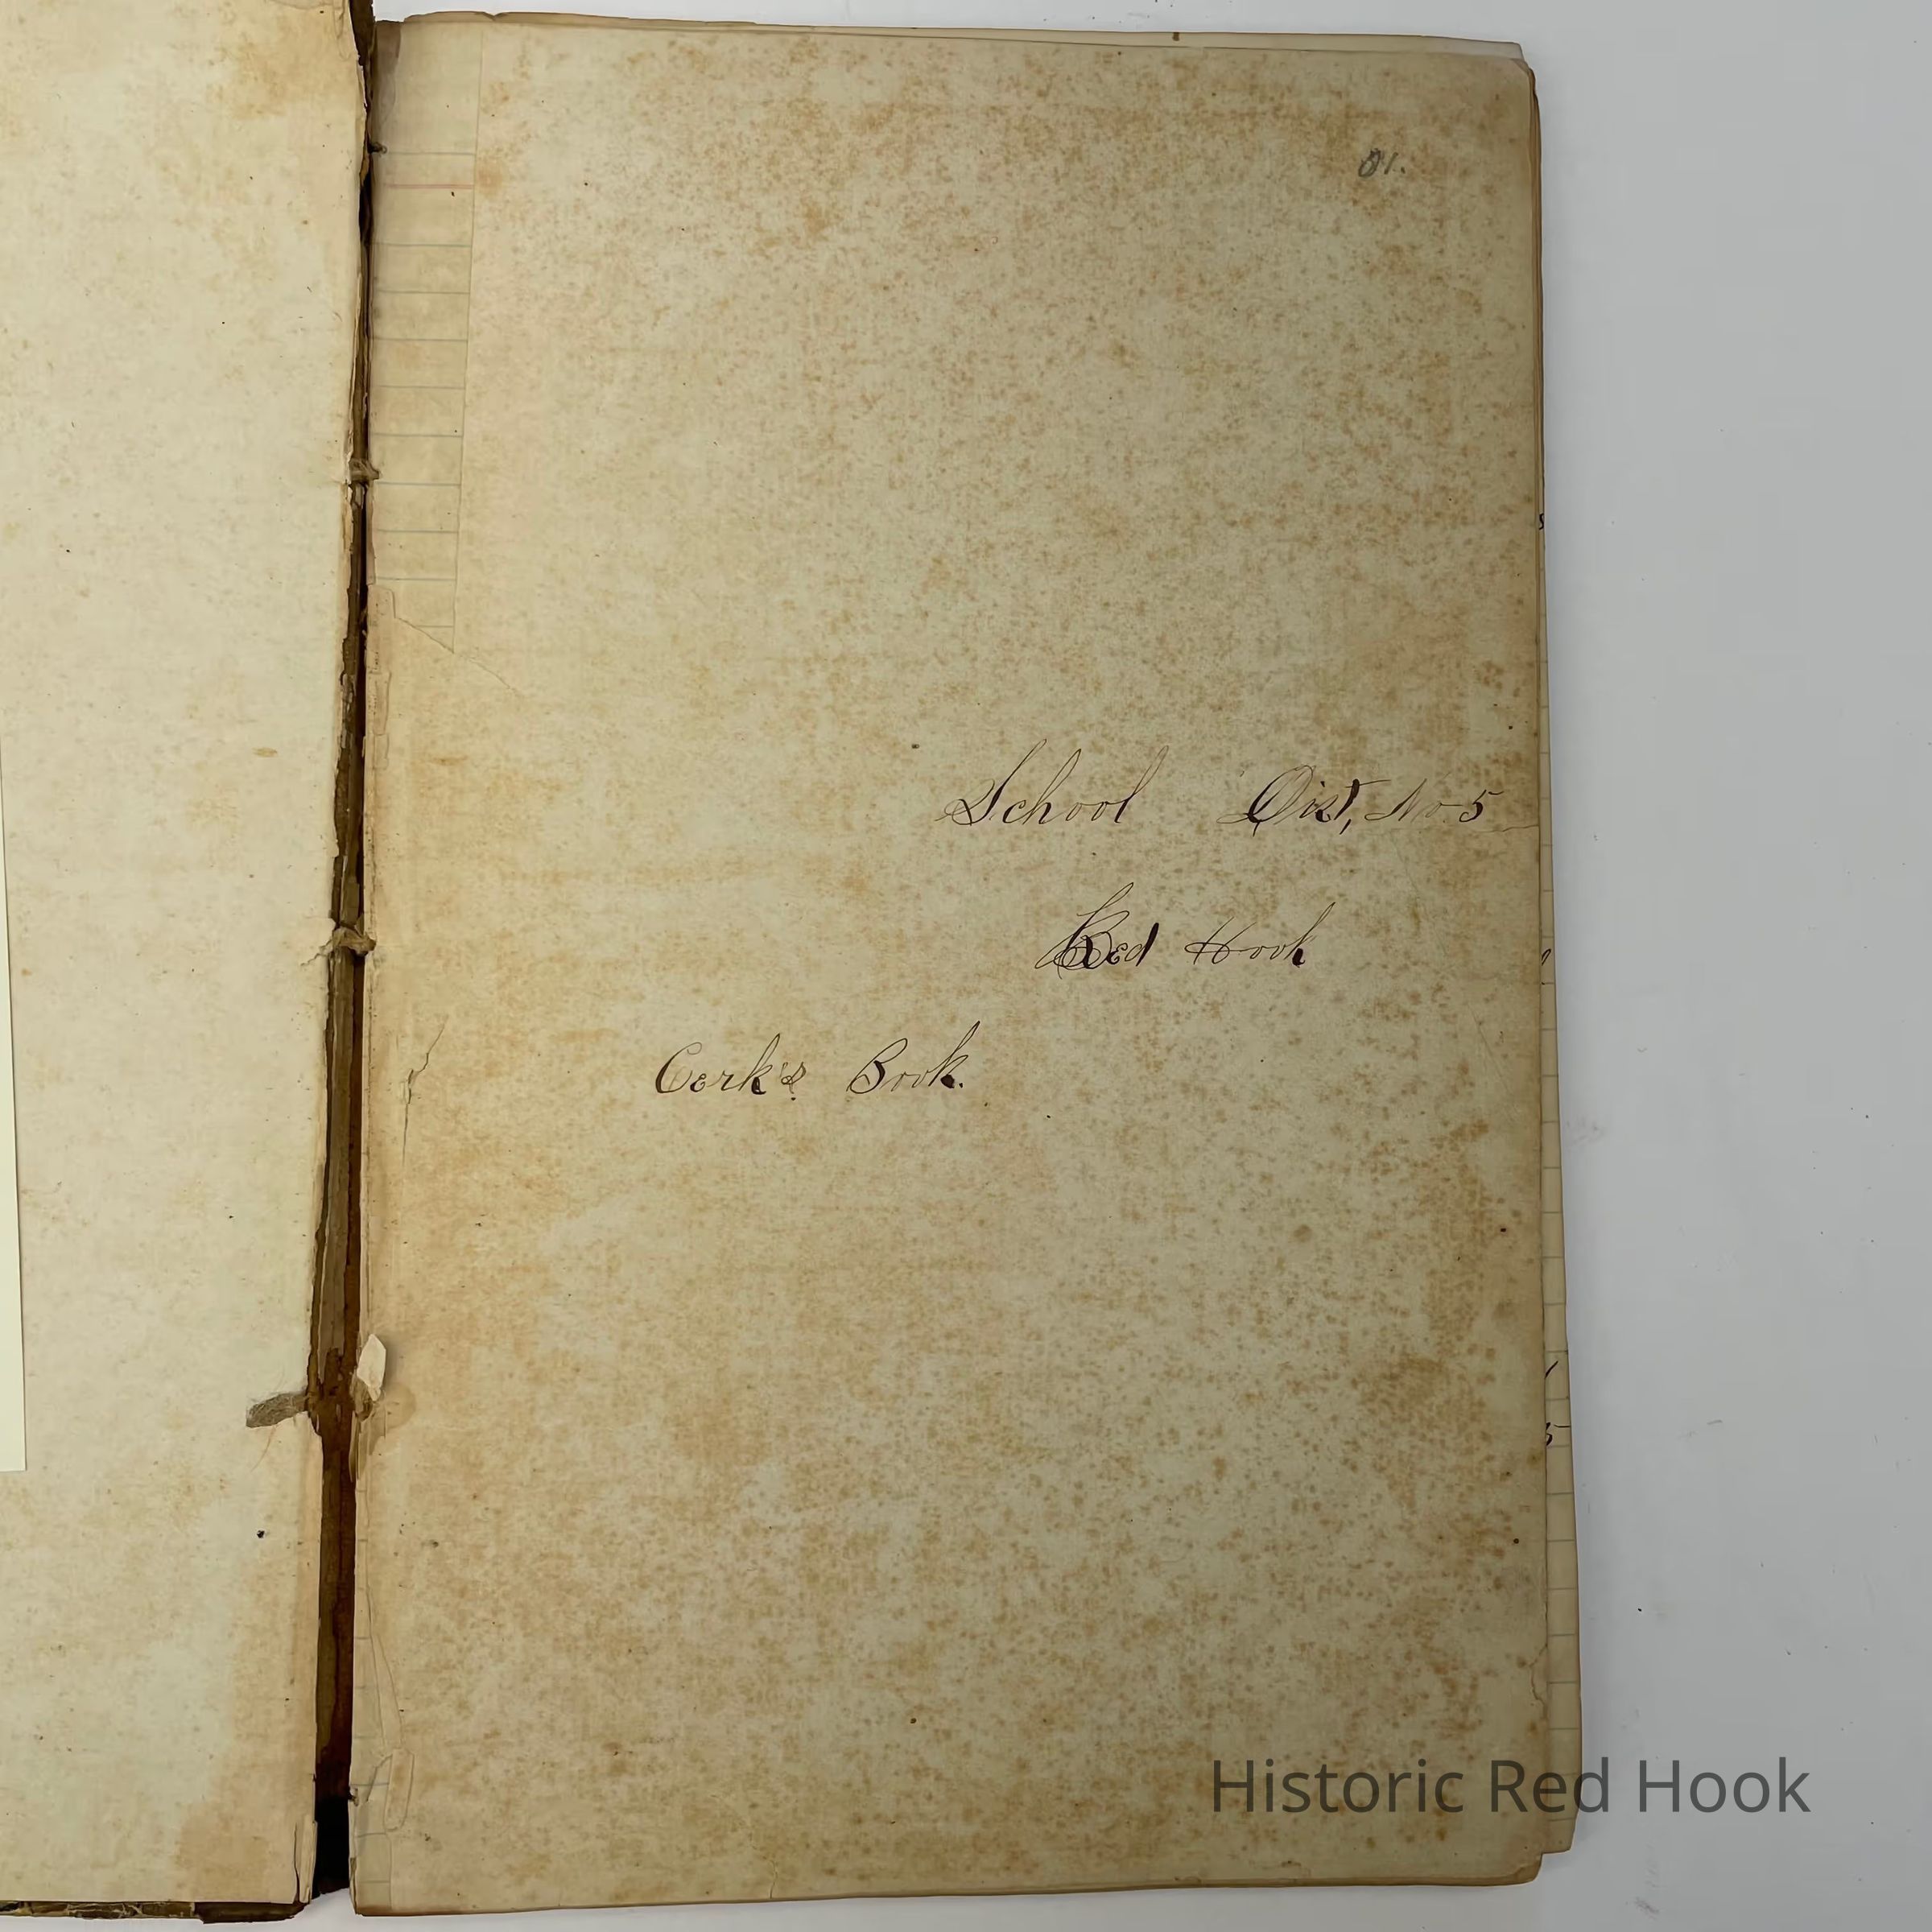 81.
School Dist, No 5
Red Hook
Cerk's Book.
Historic Red Hook